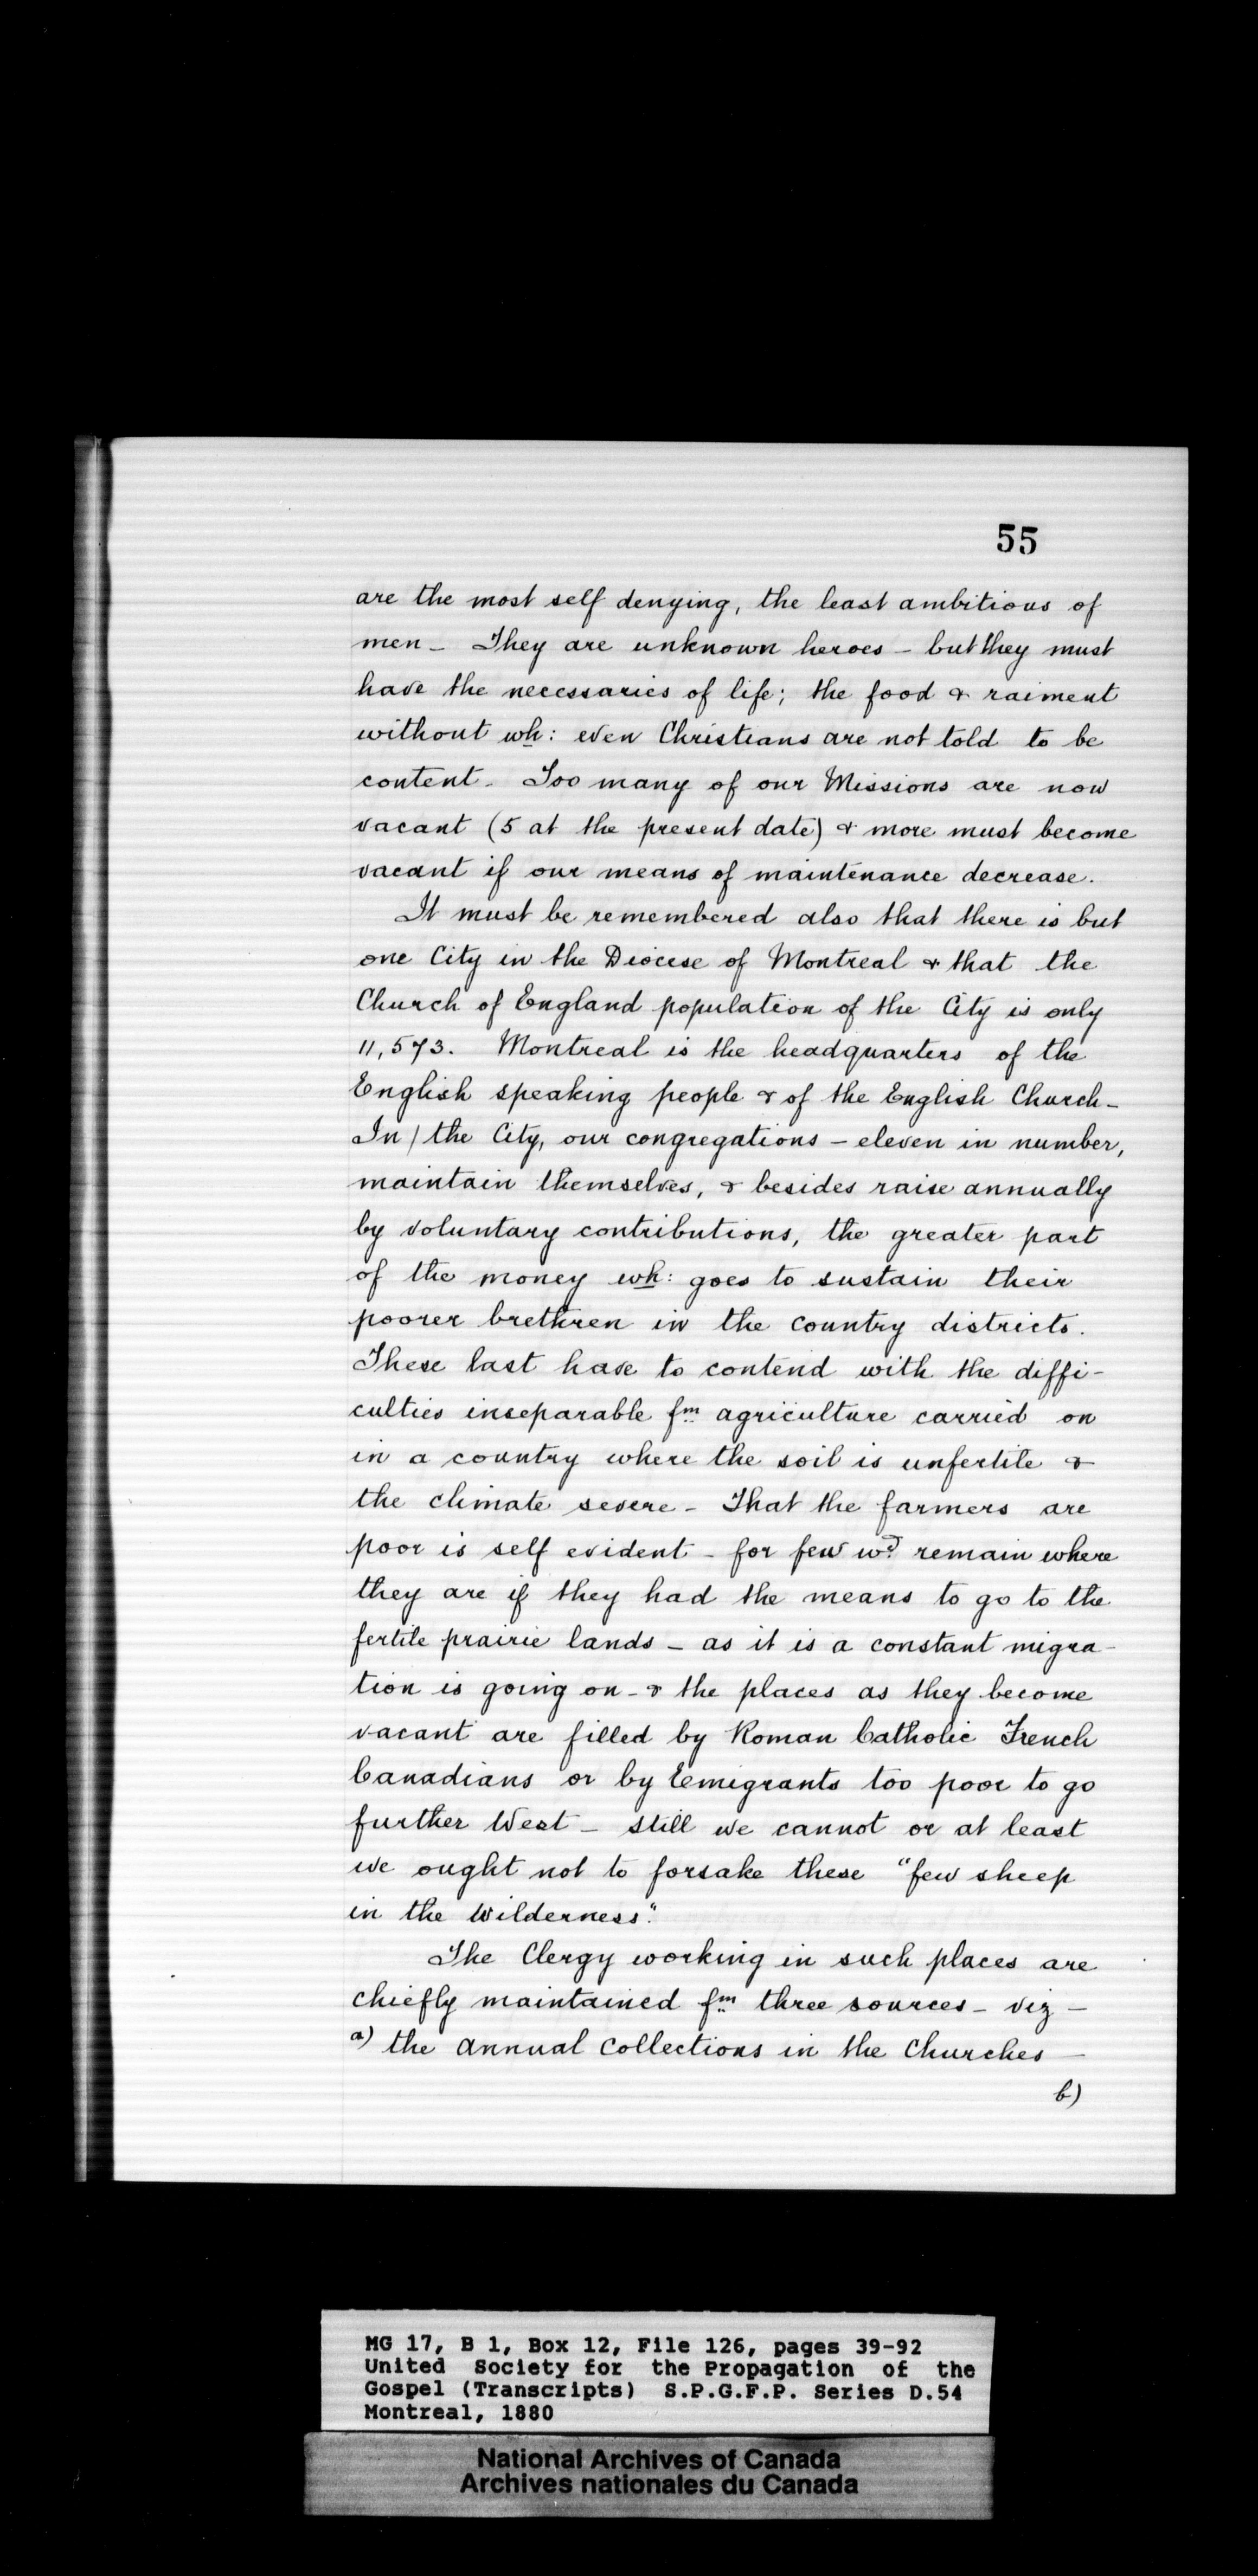 55
are the most self denying, the least ambitious of
men - They are unknown heroes - but they must
have the necessaries of life; the food & raiment
without wh: even Christians are not told to be
content. Too many of our Missions are now
vacant (5 at the present date) & more must become
vacant if our means of maintenance decrease.
It must be remembered also that there is but
one City in the Diocese of Montreal & that the
Church of England population of the City is only
11,573. Montreal is the headquarters of the
English speaking people & of the English Church -
In / the City, our congregations - eleven in number,
maintain themselves, & besides raise annually
by voluntary contributions, the greater part
of the money wh: goes to sustain their
poorer brethren in the country districts.
These last have to contend with the diffi-
culties inseparable fm agriculture carried on
in a country where the soil is unfertile &
the climate severe - That the farmers are
poor is self evident - for few wd remain where
they are if they had the means to go to the
fertile prairie lands - as it is a constant migra-
tion is going on - & the places as they become
vacant are filled by Roman Catholic French
Canadians or by Emigrants too poor to go
further West - still we cannot or at least
we ought not to forsake these "few sheep
in the Wilderness".
The Clergy working in such places are
chiefly maintained fm three sources - viz -
a) the annual collections in the Churches -
b)
MG 17, B 1, Box 12, File 126, pages 39-92
United Society for the Propagation of the
Gospel (Transcripts) S.P.G.F.P. Series D.54
Montreal, 1880
National Archives of Canada
Archives nationales du Canada